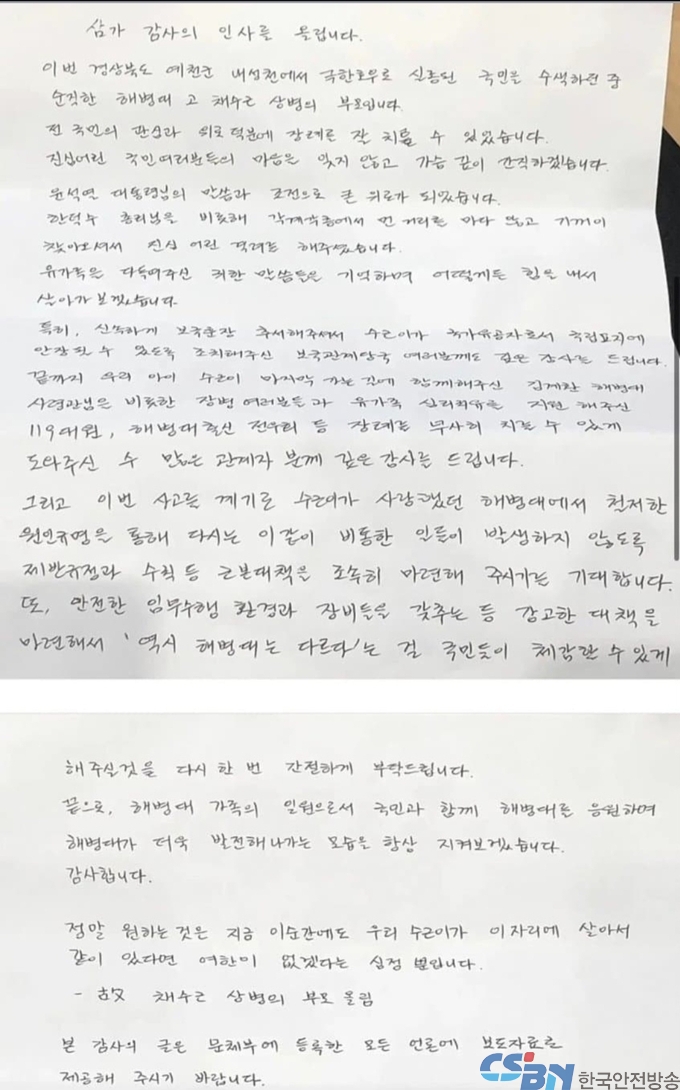 삼가 감사의 인사를 올립니다.
이번 경상북도 예천군 내성천에서 극한호우로 실종된 국민을 수색하던 중
순직한 해병대 고 채수근 상병의 부모입니다.
전 국민의 관심과 위로 덕분에 장례를 잘 치를 수 있었습니다.
진심어린 국민여러분들의 마음을 잊지 않고 가슴 깊이 간직하겠습니다.
윤석열 대통령님의 말씀과 조전으로 큰 위로가 되었습니다.
한덕수 총리님을 비롯해 각계각층에서 먼 거리를 마다 않고 기꺼이
찾아오셔서 진심 어린 격려를 해주셨습니다.
유가족을 다독여주신 귀한 말씀들을 기억하며 어떻게든 힘을 내서
살아가 보겠습니다.
특히, 신속하게 보국훈장 추서해주셔서 수근이가 국가유공자로서 국립묘지에
안장 될 수 있도록 조치해주신 보국관계당국 여러분께도 깊은 감사를 드립니다.
끝까지 우리 아이 수근이 마지막 가는 길에 함께해주신 김계환 해병대
사령관님을 비롯한 장병 여러분들과 유가족 심리치유를 지원 해주신
119대원, 해병대출신 전우회 등 장례를 무사히 치를 수 있게
도와주신 수 많은 관계자 분께 깊은 감사를 드립니다.
그리고 이번 사고를 계기로 수근이가 사랑했던 해병대에서 철저한
원인규명을 통해 다시는 이같이 비통한 일들이 발생하지 않도록
제반규정과 수칙 등 근본대책을 조속히 마련해 주시기를 기대합니다.
또, 안전한 임무수행 환경과 장비들을 갖추는 등 강고한 대책을
마련해서 '역시 해병대는 다르다'는 걸 국민들이 체감할 수 있게
해주실것을 다시 한 번 간절하게 부탁드립니다.
끝으로, 해병대 가족의 일원으로서 국민과 함께 해병대를 응원하며
해병대가 더욱 발전해나가는 모습을 항상 지켜보겠습니다.
감사합니다.
정말 원하는 것은 지금 이순간에도 우리 수근이가 이자리에 살아서
같이 있다면 여한이 없겠다는 심정 뿐입니다.
- 故 채수근 상병의 부모 올림
본 감사의 글은 문체부에 등록한 모든 언론에 보도자료로
제공해 주시기 바랍니다.
CSBN 한국안전방송